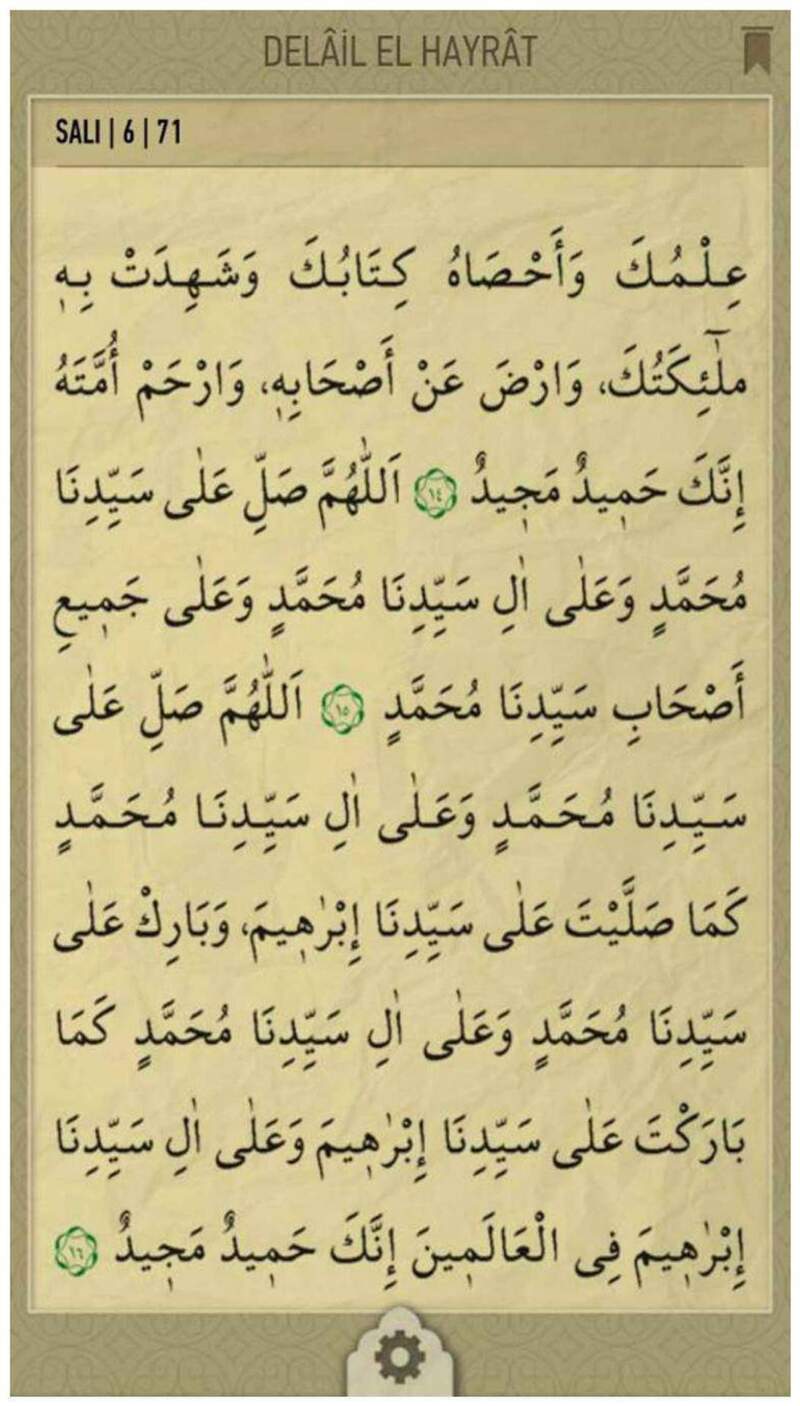 DELÂİL EL HAYRÂT
SALI | 6 | 71
عِلْمُكَ وَأَحْصَاهُ كِتَابُكَ وَشَهِدَتْ بِهٖ
ملٰٓئِكَتُكَ، وَارْضَ عَنْ أَصْحَابِهٖ، وَارْحَمْ أُمَّتَهُ
إِنَّكَ حَمٖيدٌ مَجٖيدٌ ١٤ اَللّٰهُمَّ صَلِّ عَلٰى سَيِّدِنَا
مُحَمَّدٍ وَعَلٰى اٰلِ سَيِّدِنَا مُحَمَّدٍ وَعَلٰى جَمٖيعِ
أَصْحَابِ سَيِّدِنَا مُحَمَّدٍ ١٥ اَللّٰهُمَّ صَلِّ عَلٰى
سَيِّدِنَا مُحَمَّدٍ وَعَلٰى اٰلِ سَيِّدِنَا مُحَمَّدٍ
كَمَا صَلَّيْتَ عَلٰى سَيِّدِنَا إِبْرٰهٖيمَ، وَبَارِكْ عَلٰى
سَيِّدِنَا مُحَمَّدٍ وَعَلٰى اٰلِ سَيِّدِنَا مُحَمَّدٍ كَمَا
بَارَكْتَ عَلٰى سَيِّدِنَا إِبْرٰهٖيمَ وَعَلٰى اٰلِ سَيِّدِنَا
إِبْرٰهٖيمَ فِى الْعَالَمٖينَ إِنَّكَ حَمٖيدٌ مَجٖيدٌ ١٦